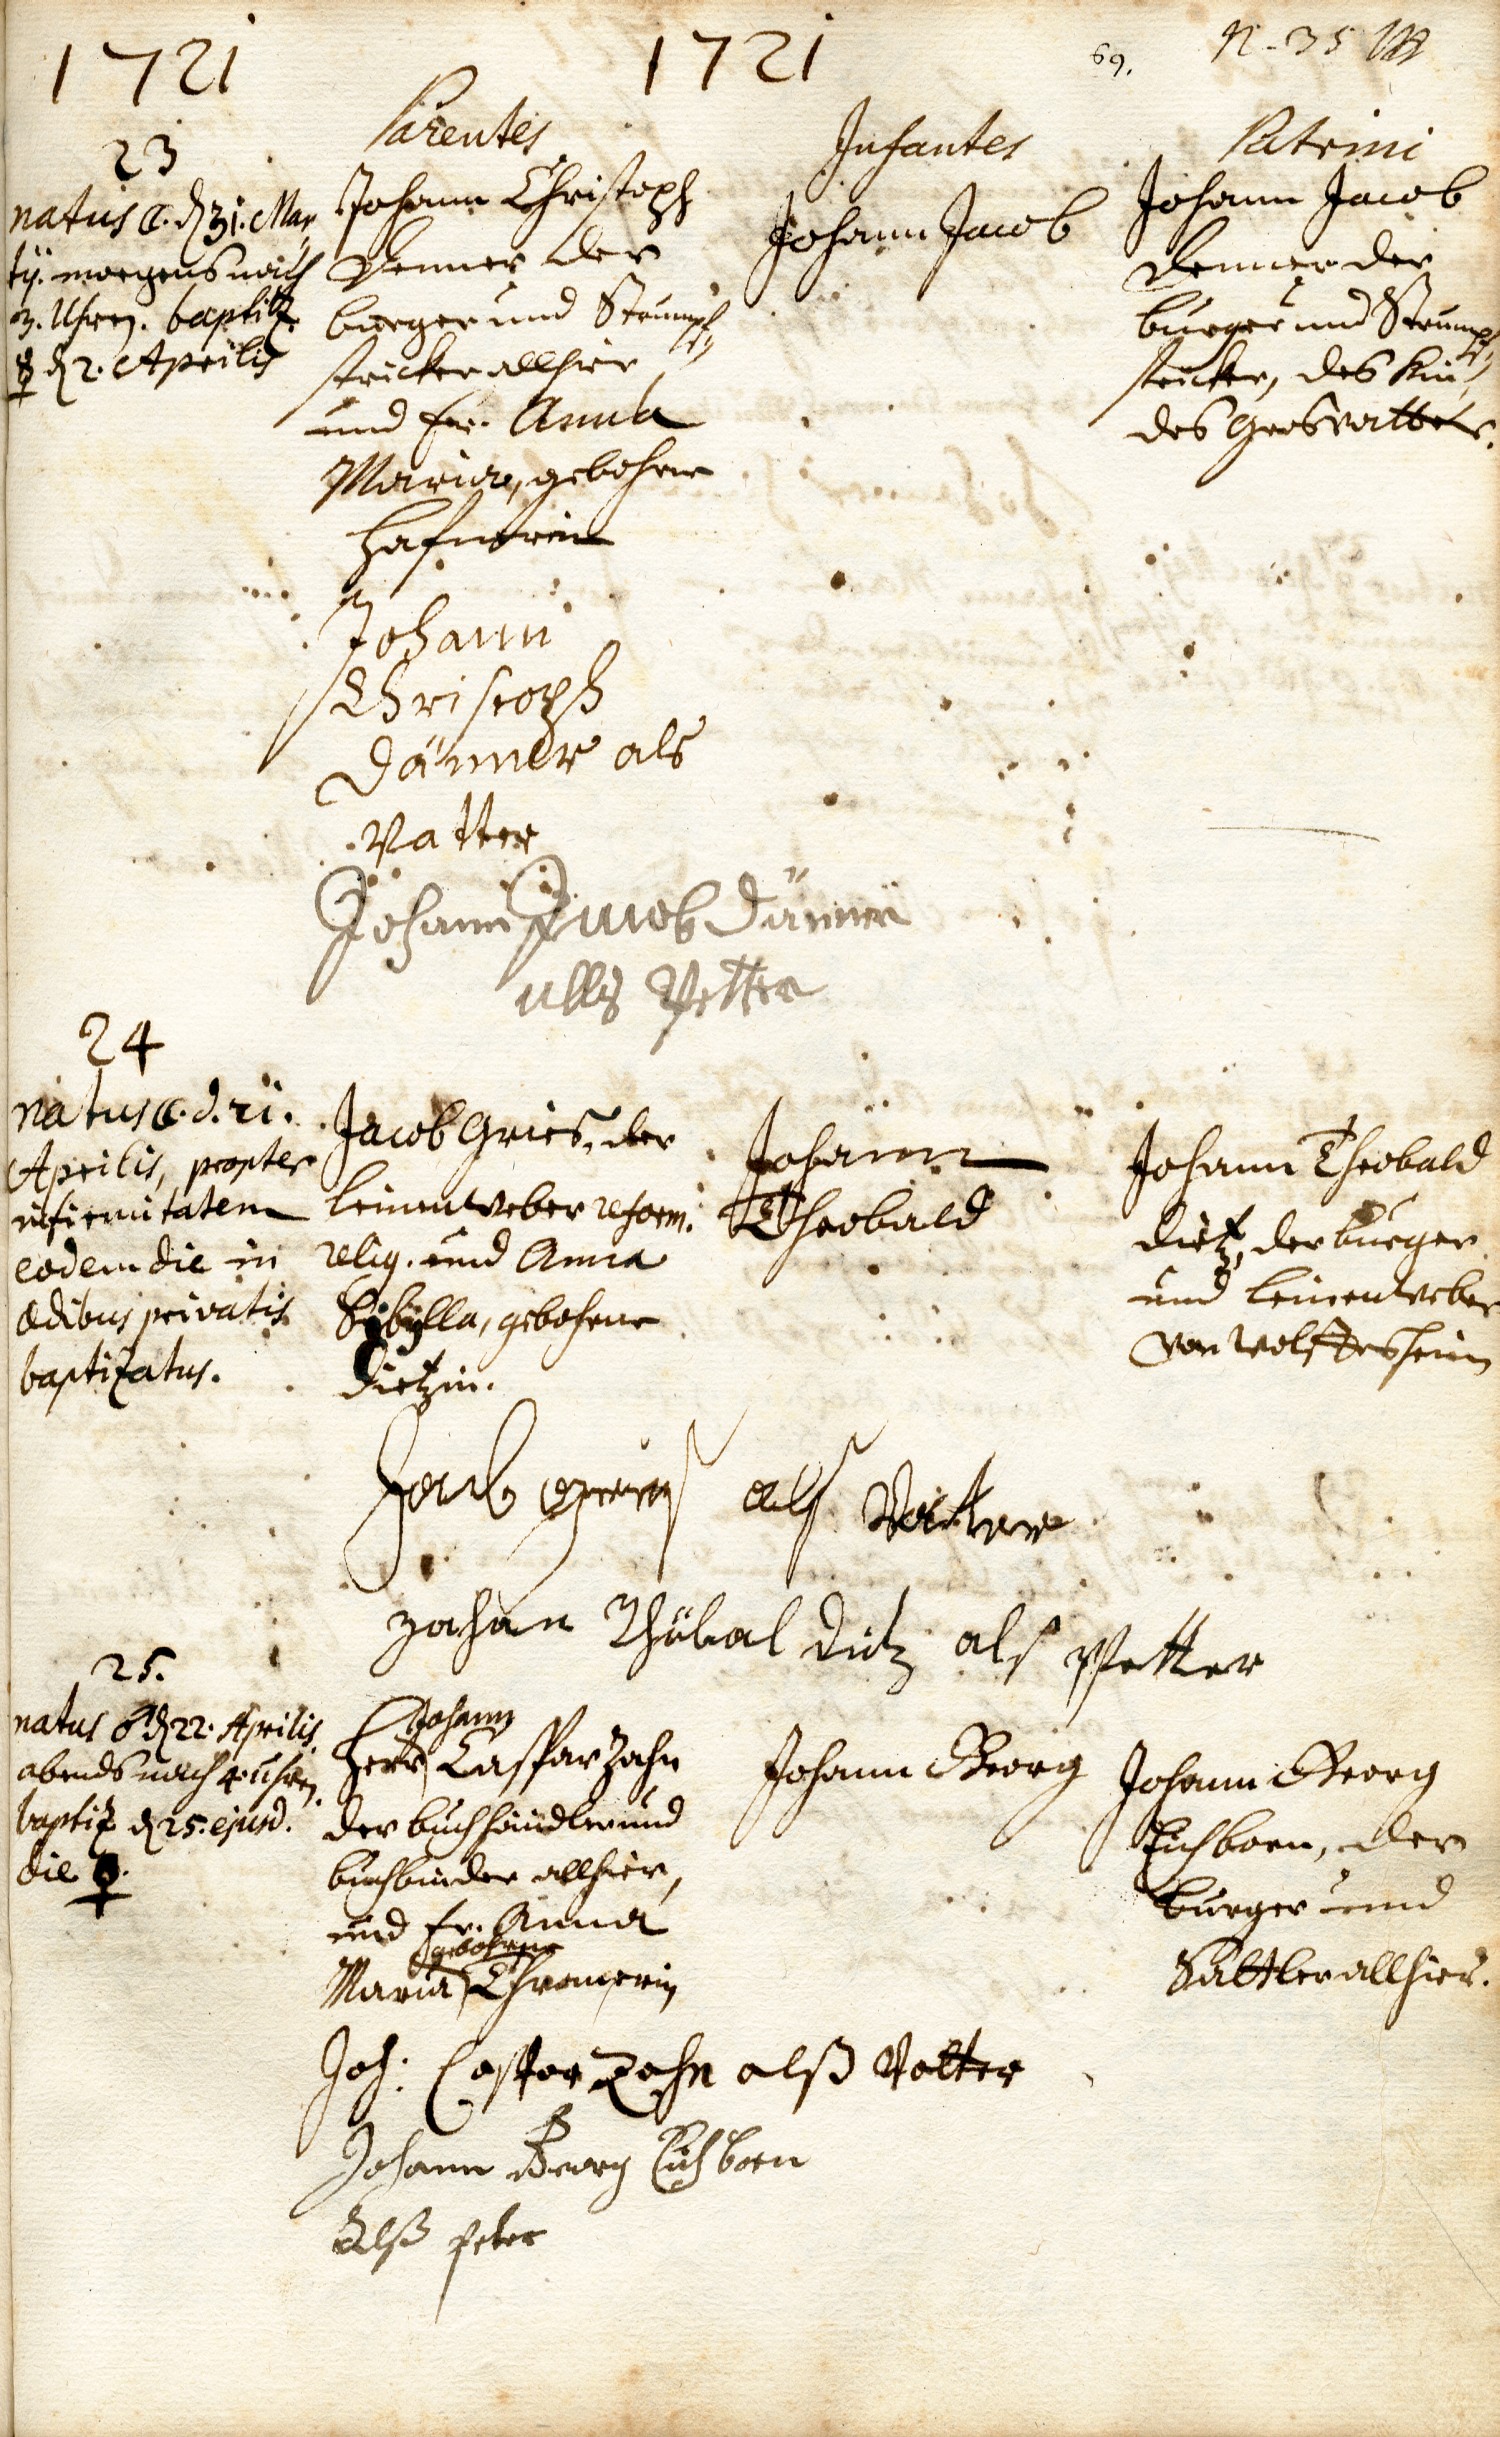 1721
1721
69.
Parentes
Infantes
Patrini
23
natus ☾. d 31. Mar-
tij. morgens nach
3. Uhren. baptiz.
☿ d 2. Aprilis
Johann Christoph
Denner der
burger und Strumpf-
stricker allhier
und Fr. Anna
Maria, gebohrne
Hafnerin
Johann Jacob
Johann Jacob
Denner der
burger und Strumpf-
stricker, des Kin-
des Grosvatter.
Johann
Christoph
Dänner als
Vatter
Johann Jacob Dänner
alls Petter
24
natus ☾. d. 21.
Aprilis, propter
infirmitatem
eodem die in
ædibus privatis
baptizatus.
Jacob Gries, der
leinenweber reform.
relig. und Anna
Sibylla, gebohrne
Dietzin.
Johann
Theobald
Johann Theobald
Dietz, der burger
und leinenweber
von Wolffesheim
Jacob als Vatter
Johan Thübal Dietz als Petter
25.
natus ♂ d 22. Aprilis.
abends nach 4 uhren.
baptiz d 25. ejusd.
die ♀.
Johann
Herr Caspar Zahn
der buchhändler und
buchbinder allhier,
und Fr. Anna
gebohrne
Maria
Johann Georg
Johann Georg
Eichborn, der
burger und
Sattler allhier.
Joh: Caspar Zahn alß Vatter
Johann Georg Eichborn
Alß peter